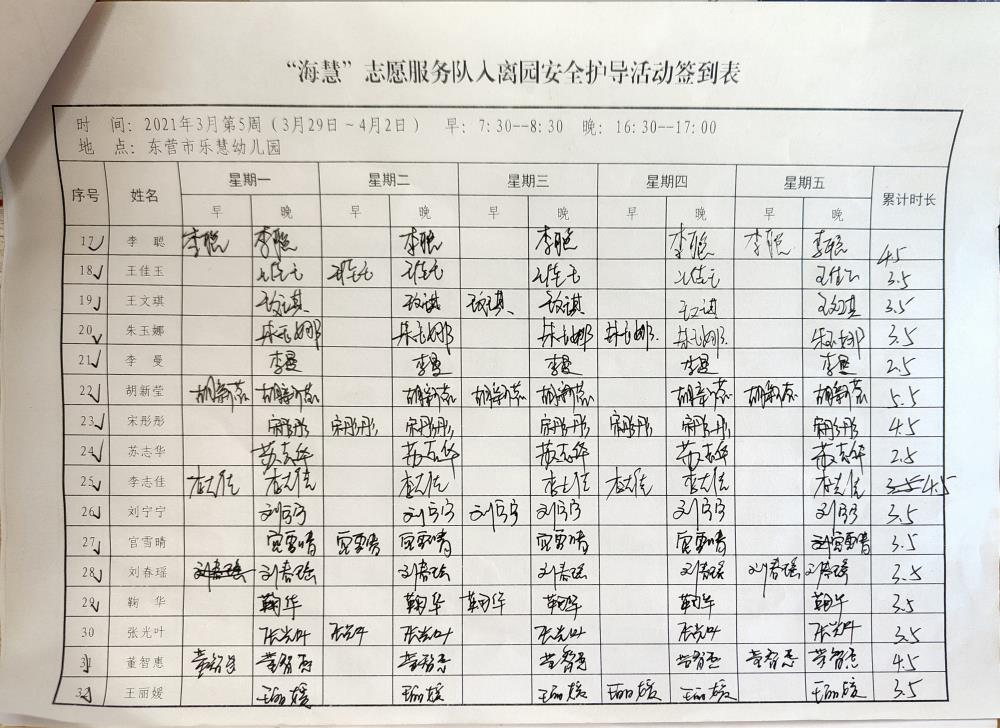 “海慧”志愿服务队入离园安全护导活动签到表
时 间: 2021年3月第5周 (3月29日～4月2日) 早: 7:30--8:30 晚: 16:30--17:00
地 点: 东营市乐慧幼儿园
序号 姓名 星期一 星期二 星期三 星期四 星期五 累计时长
早 晚 早 晚 早 晚 早 晚 早 晚
17 李 聪 李聪 李聪 李聪 李聪 李聪 李聪 李聪 4.5
18 王佳玉 王佳玉 王佳玉 王佳玉 王佳玉 王佳玉 王佳玉 3.5
19 王文琪 王文琪 王文琪 王文琪 王文琪 王文琪 王文琪 3.5
20 朱玉娜 朱玉娜 朱玉娜 朱玉娜 朱玉娜 朱玉娜 朱玉娜 3.5
21 李 曼 李曼 李曼 李曼 李曼 李曼 2.5
22 胡新莹 胡新莹 胡新莹 胡新莹 胡新莹 胡新莹 胡新莹 胡新莹 胡新莹 5.5
23 宋彤彤 宋彤彤 宋彤彤 宋彤彤 宋彤彤 宋彤彤 宋彤彤 宋彤彤 4.5
24 苏志华 苏志华 苏志华 苏志华 苏志华 苏志华 2.5
25 李志佳 李志佳 李志佳 李志佳 李志佳 李志佳 李志佳 李志佳 3.5 4.5
26 刘宁宁 刘宁宁 刘宁宁 刘宁宁 刘宁宁 刘宁宁 刘宁宁 3.5
27 宫雪晴 宫雪晴 宫雪晴 宫雪晴 宫雪晴 宫雪晴 宫雪晴 3.5
28 刘春瑶 刘春瑶 刘春瑶 刘春瑶 刘春瑶 刘春瑶 刘春瑶 刘春瑶 3.5
29 鞠 华 鞠华 鞠华 鞠华 鞠华 鞠华 鞠华 3.5
30 张光叶 张光叶 张光叶 张光叶 张光叶 张光叶 张光叶 3.5
31 董智惠 董智惠 董智惠 董智惠 董智惠 董智惠 董智惠 董智惠 4.5
32 王丽媛 王丽媛 王丽媛 王丽媛 王丽媛 王丽媛 王丽媛 3.5